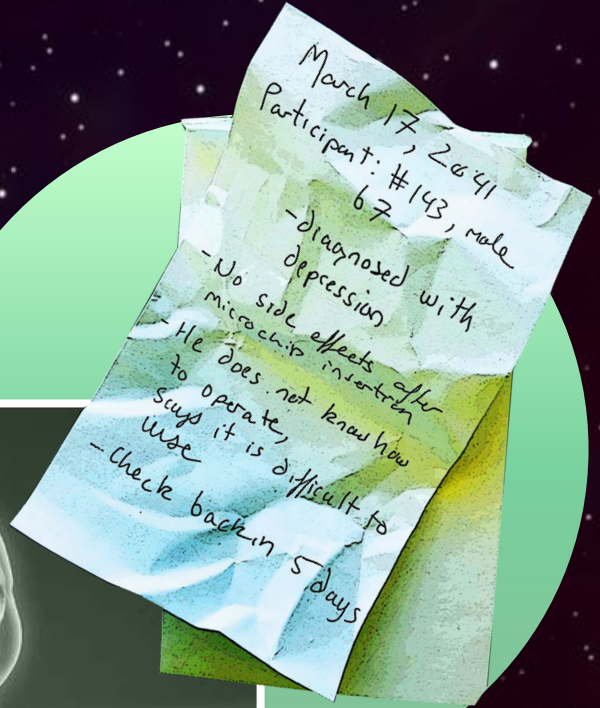 March 17, 2041
Participant: #143, male
67
-diagnosed with
depression
-No side effects after
microchip insertion
-He does not know how
to operate,
says it is difficult to
use
-Check back in 5 days